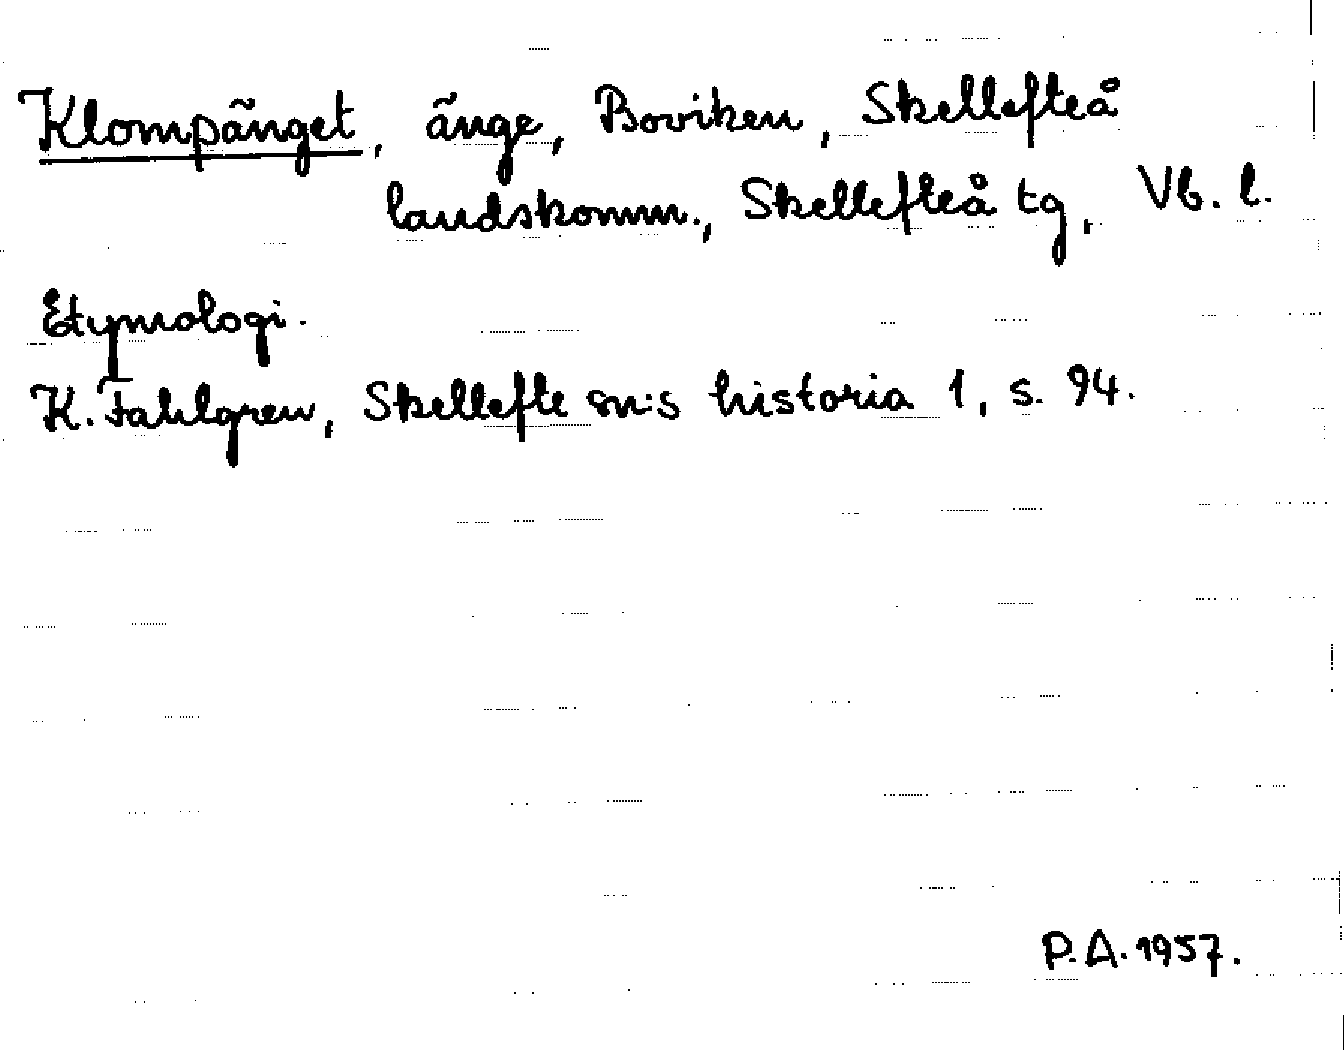 Klompänget, änge, Boviken, Skellefteå
landskomm., Skellefteå tg, Vb. l.
Etymologi.
K. Fahlgren, Skellefte sn:s historia 1, s. 94.
P.A. 1957.